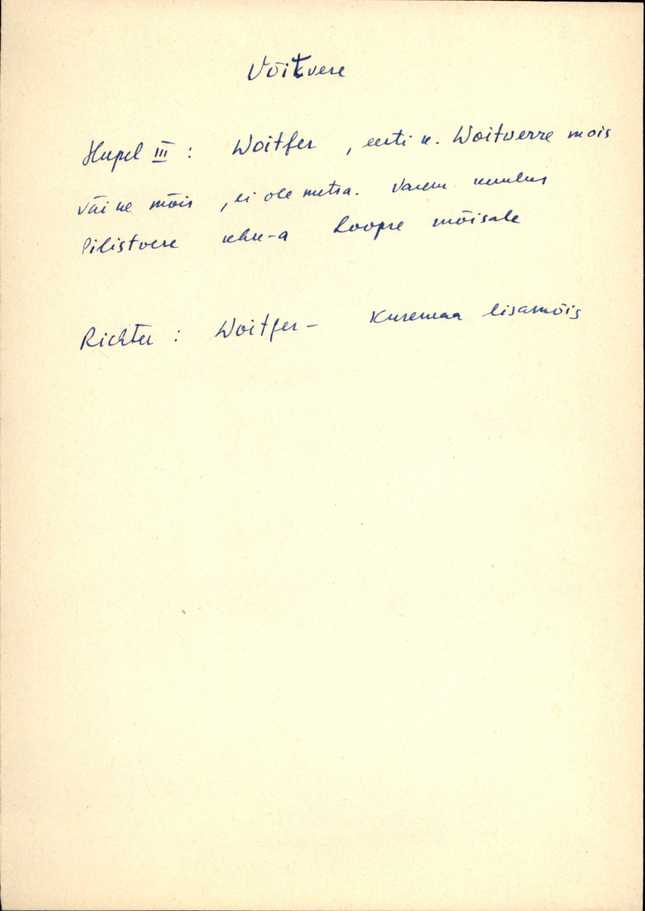 Võikvere
Hupel III : Woitfer , eesti k. Woitwerre mois
Väike mõis , ei ole metsa. Varem kuulus
Pilistvere khk-a Loopre mõisale
Richter : Woitfer – Kuremaa lisamõis